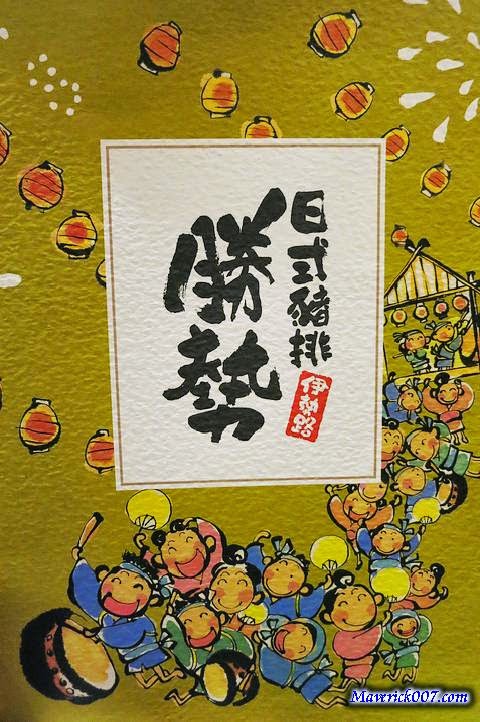 日式豬排
勝勢
伊勢路
Maverick007.com